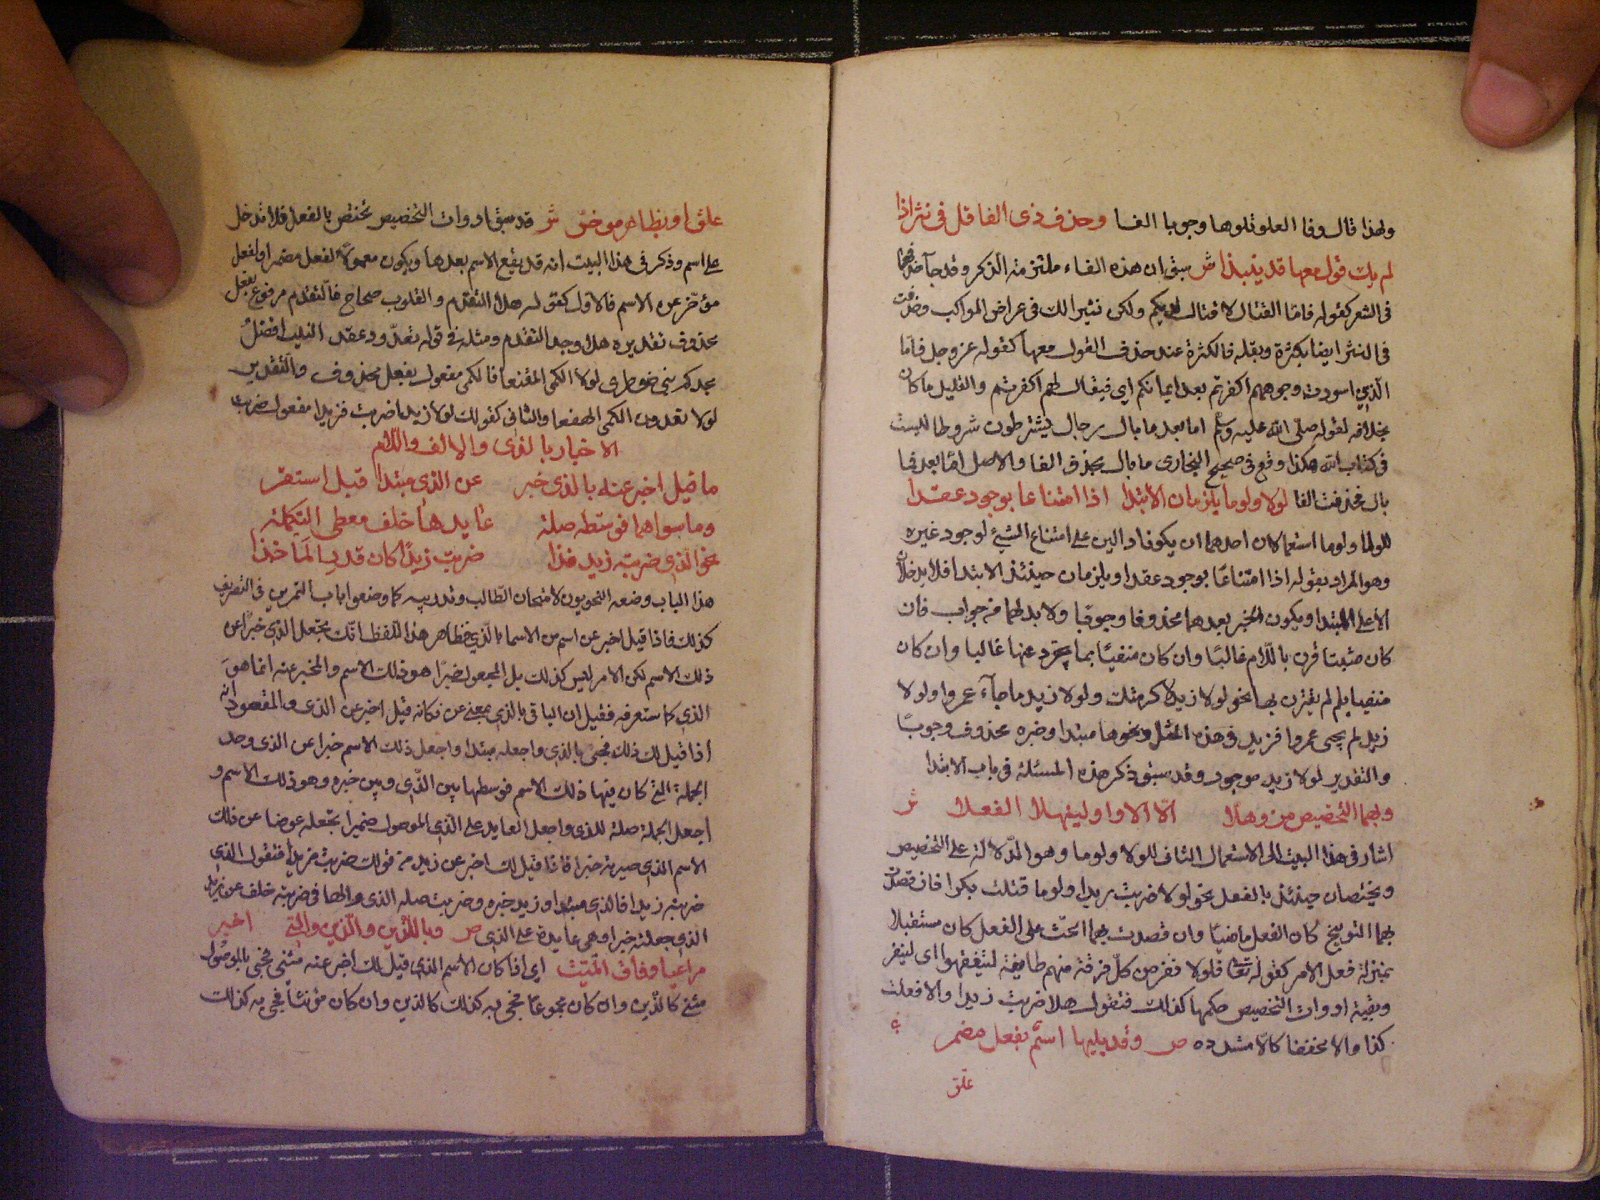 ولهذا قال وفا لتلو تلوها وجوبا الفا وحذف ذى الفا قل فى نثر اذا
لم يك قول معها قد نبذا ش سبق ان هذه الفاء ملتزمة الذكر وقد جآ حذفها
فى الشعر كقوله فاما القتال لا قتال لديكم ولكن سيرا لك فى عراض المواكب وحذفت
فى النثر ايضا بكثرة وبقلة فالكثرة عند حذف القول معها كقوله عز وجل فاما
الذين اسودت وجوههم اكفرتم بعد ايمانكم اي فيقال لهم اكفرتم والقليل ما كان
بخلافه كقوله صلى الله عليه وسلم اما بعد ما بال رجال يشترطون شروطا ليست
فى كتاب الله هكذا وقع فى صحيح البخارى ما بال بحذف الفا والاصل اما بعد فما
بال فحذفت الفا لولا ولوما يلزمان الابتدا اذا امتناعا بوجود عقدا
للولا ولوما استعمالان احدهما ان يكونا دالين على امتناع الشيء لوجود غيره
وهو المراد بقوله اذا امتناعا بوجود عقدا ويلزمان حينئذ الابتدا فلا يدخلان
الا على المبتدا ويكون الخبر بعدهما محذوفا وجوبا ولا بد لهما من جواب فان
كان مثبتا قرن باللام غالبا وان كان منفيا بما تجرد عنها غالبا وان كان
منفيا بلم لم يقترن بها نحو لولا زيد لاكرمتك ولولا زيد ما جآء عمرو ولولا
زيد لم يجى عمرو فزيد فى هذه المثل ونحوها مبتدا وخبره محذوف وجوبا
والتقدير لولا زيد موجود وقد سبق ذكر هذه المسئلة فى باب الابتدا
وبهما التخصيص مز وهلا الا الا واولينها الفعلا ش
اشار فى هذا البيت الى الاستعمال الثانى للولا ولوما وهو الدلالة على التخصيص
ويختصان حينئذ بالفعل نحو لولا ضربت زيدا ولوما قتلت بكرا فان قصدت
بهما التوبيخ كان الفعل ماضيا وان قصدت بهما الحث على الفعل كان مستقبلا
بمنزلة فعل الامر كقوله تعا فلولا نفر من كل فرقة منهم طايفة ليتفقهوا اى لينفر
وبقية ادوات التخصيص حكمها كذلك فتقول هلا ضربت زيدا والا فعلت
كذا والا مخففة كالا مشددة ص وقد يليها اسم بفعل مضمر
علق
علق او بظاهر موخر ش قد سبق ادوات التخصيص تختص بالفعل فلا تدخل
على اسم وذكر فى هذا البيت انه قد يقع الاسم بعدها ويكون معمولا لفعل مضمر او لفعل
مؤخر عن الاسم فالاول كقوله هلا التقدم والقلوب صحاح فالتقدم مرفوع بفعل
محذوف تقديره هلا وجد التقدم ومثله فى قوله تعدون عقر النيب افضل
مجدكم بنى ضوطرى لولا الكمى المقنعا فالكمى مفعول بفعل محذوف والتقدير
لولا تعدون الكمى المقنعا والثانى كقولك لولا زيدا ضربت فزيدا مفعول ضربت
الاخبار بالذى والالف واللام
ما قيل اخبر عنه بالذى خبر عن الذى مبتدا قبل استقر
وما سواهما فوسطه صلة عايدها خلف معطى التكملة
نحو الذى ضربته زيد فذا ضربت زيدا كان فادر الماخذا
هذا الباب وضعه النحويون لامتحان الطالب وتدريبه كما وضعوا باب التمرين فى التصريف
كذلك فاذا قيل اخبر عن اسم من الاسما بالذى فظاهر هذا اللفظ انك تجعل الذى خبرا عن
ذلك الاسم لكن الامر ليس كذلك بل المجعول خبرا هو ذلك الاسم والمخبر عنه انما هو
الذى كما ستعرفه فقيل ان البا فى بالذى بمعنى عن فكانه قيل اخبر عن الذى والمقصود انه
اذا قيل لك ذلك فجئ بالذى واجعله مبتدا واجعل ذلك الاسم خبرا عن الذى وخذ
الجملة التى كان فيها ذلك الاسم فوسطها بين الذى وبين خبره وهو ذلك الاسم و
اجعل الجملة صلة للذى واجعل العايد على الذى الموصول ضميرا تجعله عوضا عن ذلك
الاسم الذى صيرته خبرا فاذا قيل لك اخبر عن زيد من قولك ضربت زيدا فتقول الذى
ضربته زيد فالذى مبتدا وزيد خبره وضربته صلة الذى والها فى ضربته خلف عن زيد
الذى جعلته خبرا وهى عايدة على الذى ص وباللذين والذين والتى اخبر
مراعيا وفاق المثبت اى اذا كان الاسم الذى قيل لك اخبر عنه مثنى فجئ بالموصول
مثنى كاللذين وان كان مجموعا فجئ به كذلك كالذين وان كان مؤنثا فجئ به كذلك